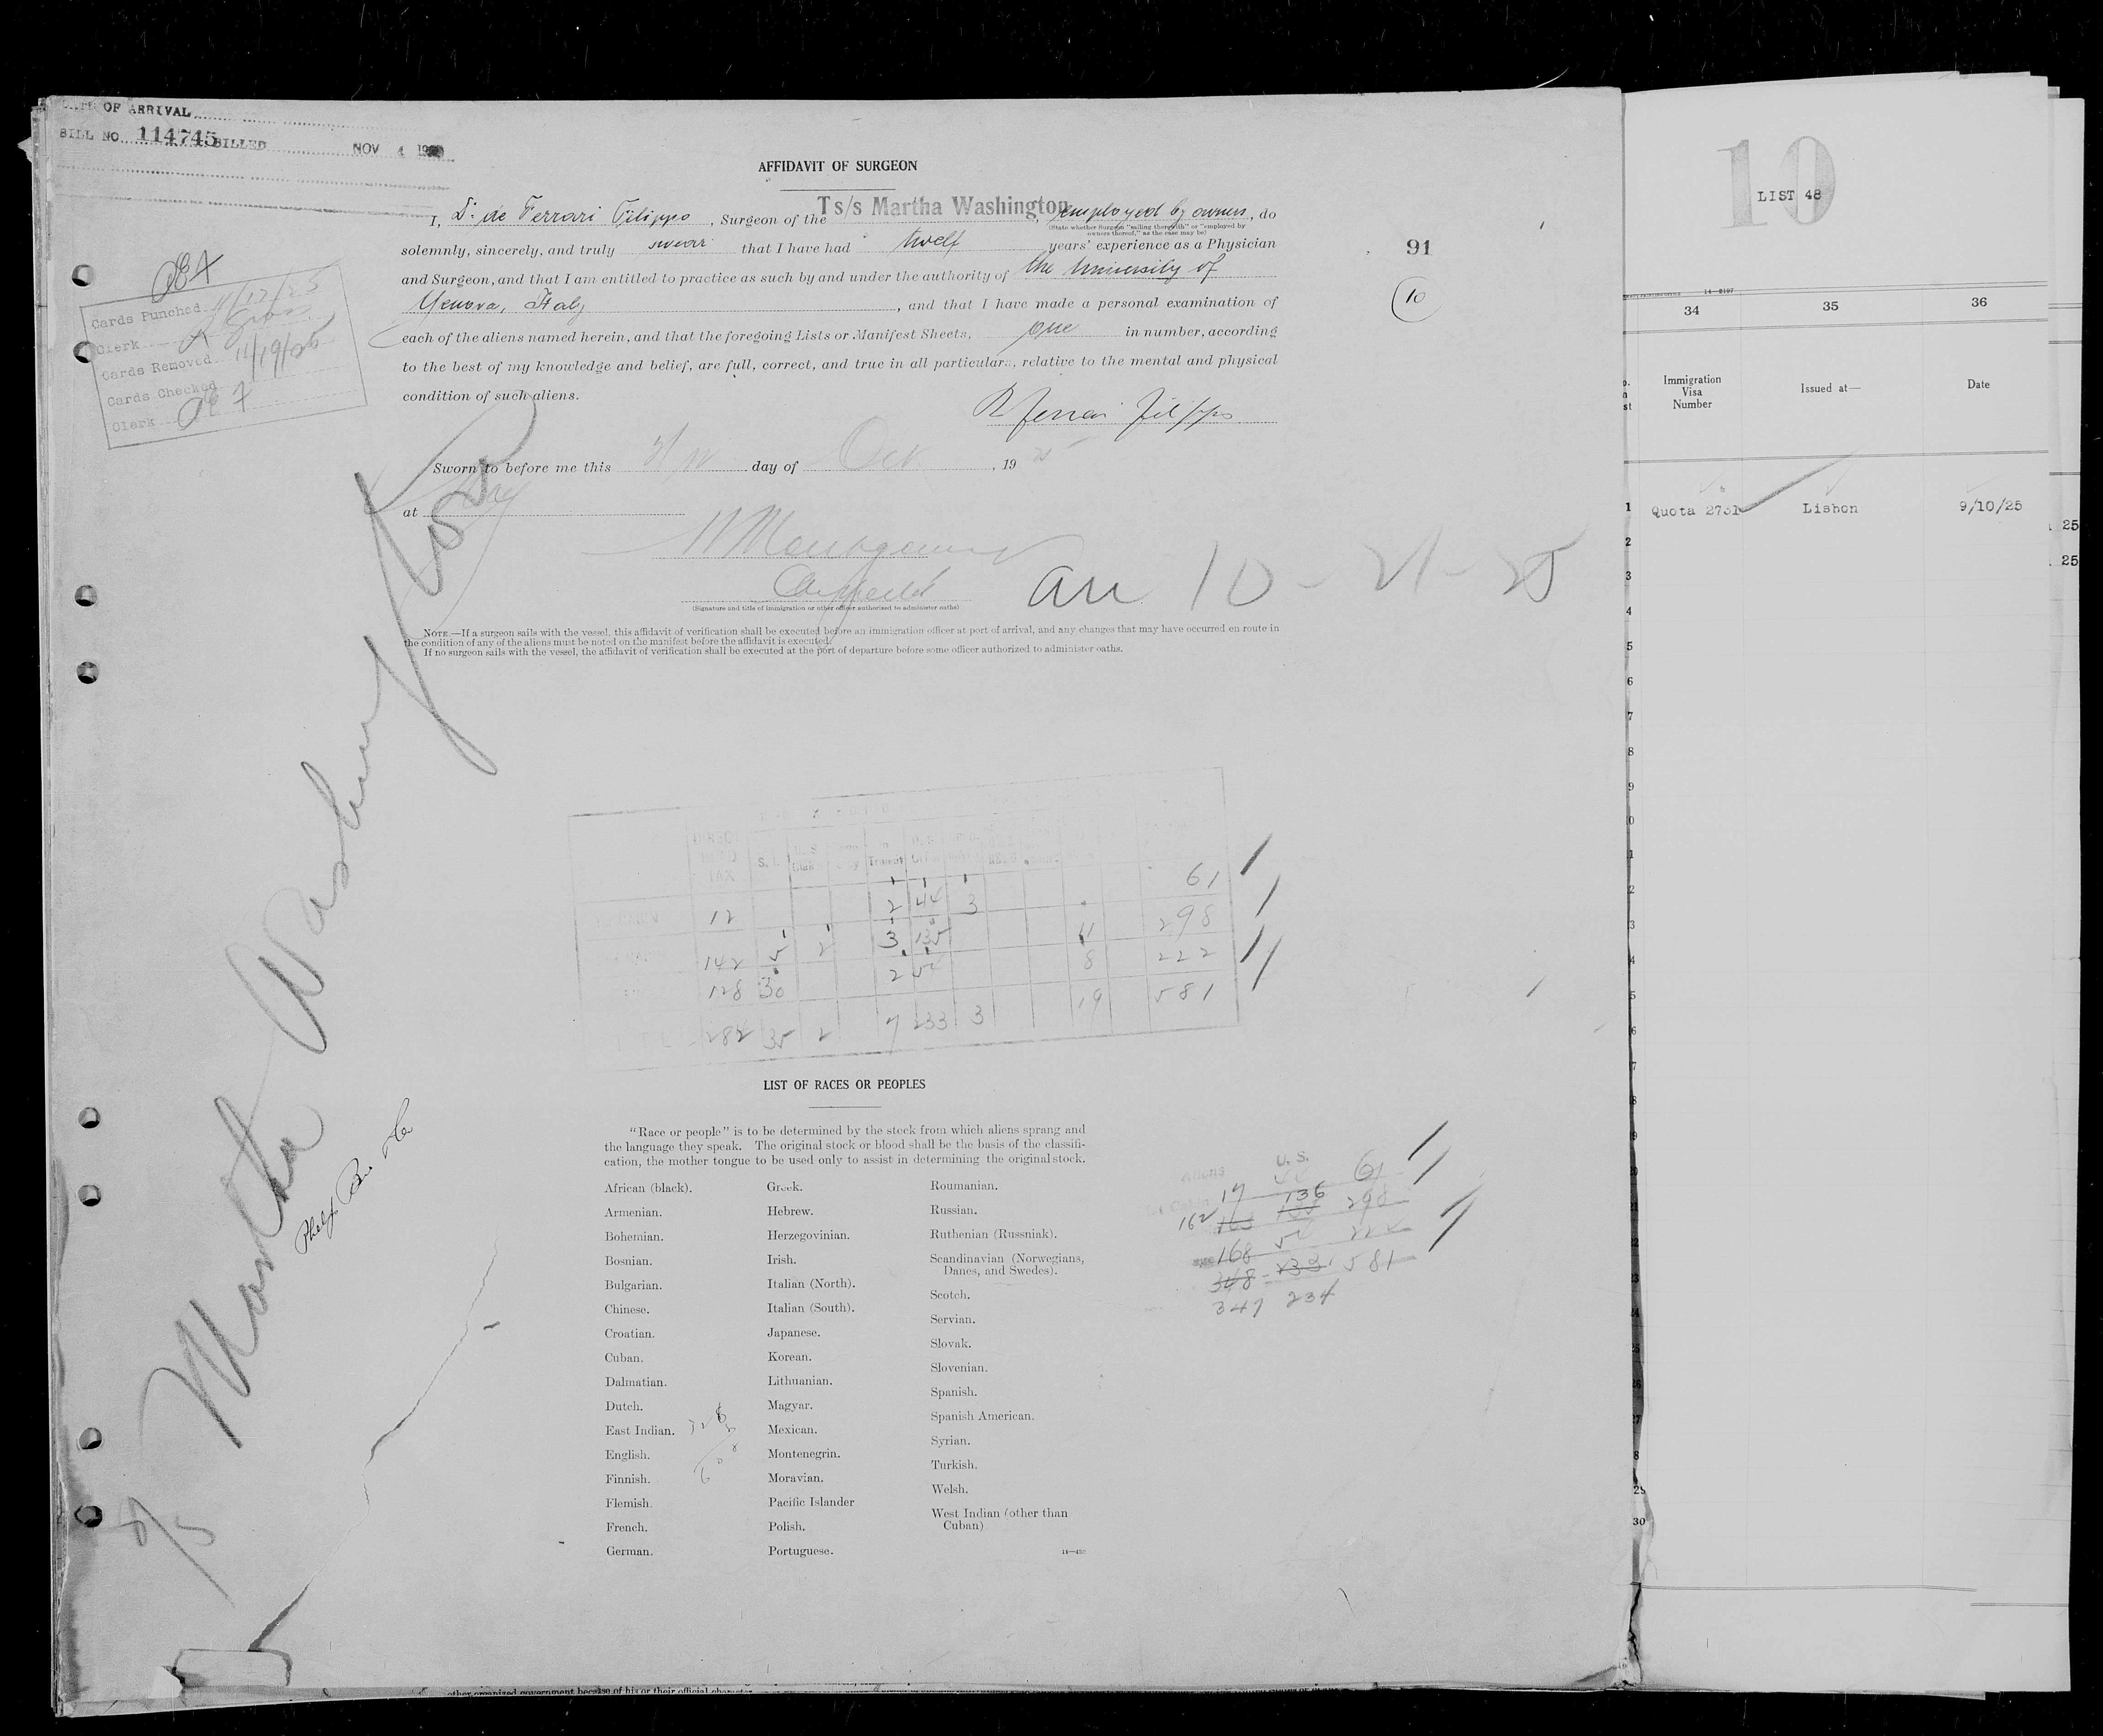 OF ARRIVAL
BILL NO. 114745 BILLED NOV 4
AFFIDAVIT OF SURGEON
I, Dr. de Ferrari Filippo, Surgeon of the Ts/s Martha Washington, employed by owners, do
(State whether Surgeon "sailing therewith" or "employed by
owners thereof," as the case may be)
solemnly, sincerely, and truly swear that I have had twelf years' experience as a Physician
and Surgeon, and that I am entitled to practice as such by and under the authority of the University of
Genova, Italy, and that I have made a personal examination of
each of the aliens named herein, and that the foregoing Lists or Manifest Sheets, one in number, according
to the best of my knowledge and belief, are full, correct, and true in all particulars, relative to the mental and physical
condition of such aliens.
Sworn to before me this day of Oct, 19 25
at
(Signature and title of immigration or other officer authorized to administer oaths)
10-21-25
NOTE.—If a surgeon sails with the vessel, this affidavit of verification shall be executed before an immigration officer at port of arrival, and any changes that may have occurred en route in
the condition of any of the aliens must be noted on the manifest before the affidavit is executed.
If no surgeon sails with the vessel, the affidavit of verification shall be executed at the port of departure before some officer authorized to administer oaths.
91
10
Cards Punched 11/12/25
Clerk
Cards Removed 11/19/25
Cards Checked
Clerk
Martha Washington
S. I. Transit
12 2 44 3 61
142 5 2 3 135 11 298
128 30 2 54 8 222
282 35 2 7 233 3 19 581
LIST OF RACES OR PEOPLES
"Race or people" is to be determined by the stock from which aliens sprang and
the language they speak. The original stock or blood shall be the basis of the classifi-
cation, the mother tongue to be used only to assist in determining the original stock.
African (black).
Armenian.
Bohemian.
Bosnian.
Bulgarian.
Chinese.
Croatian.
Cuban.
Dalmatian.
Dutch.
East Indian.
English.
Finnish.
Flemish.
French.
German.
Greek.
Hebrew.
Herzegovinian.
Irish.
Italian (North).
Italian (South).
Japanese.
Korean.
Lithuanian.
Magyar.
Mexican.
Montenegrin.
Moravian.
Pacific Islander
Polish.
Portuguese.
Roumanian.
Russian.
Ruthenian (Russniak).
Scandinavian (Norwegians,
Danes, and Swedes).
Scotch.
Servian.
Slovak.
Slovenian.
Spanish.
Spanish American.
Syrian.
Turkish.
Welsh.
West Indian (other than
Cuban)
Aliens U. S.
17 44 61
162 136 298
168 54 222
348 233 581
347 234
other organized government because of his or their official character
10
LIST 48
14-2197
34 35 36
Immigration
Visa
Number
Issued at—
Date
1 Quota 2731 Lisbon 9/10/25
25
2
25
3
4
5
6
7
8
9
29
30